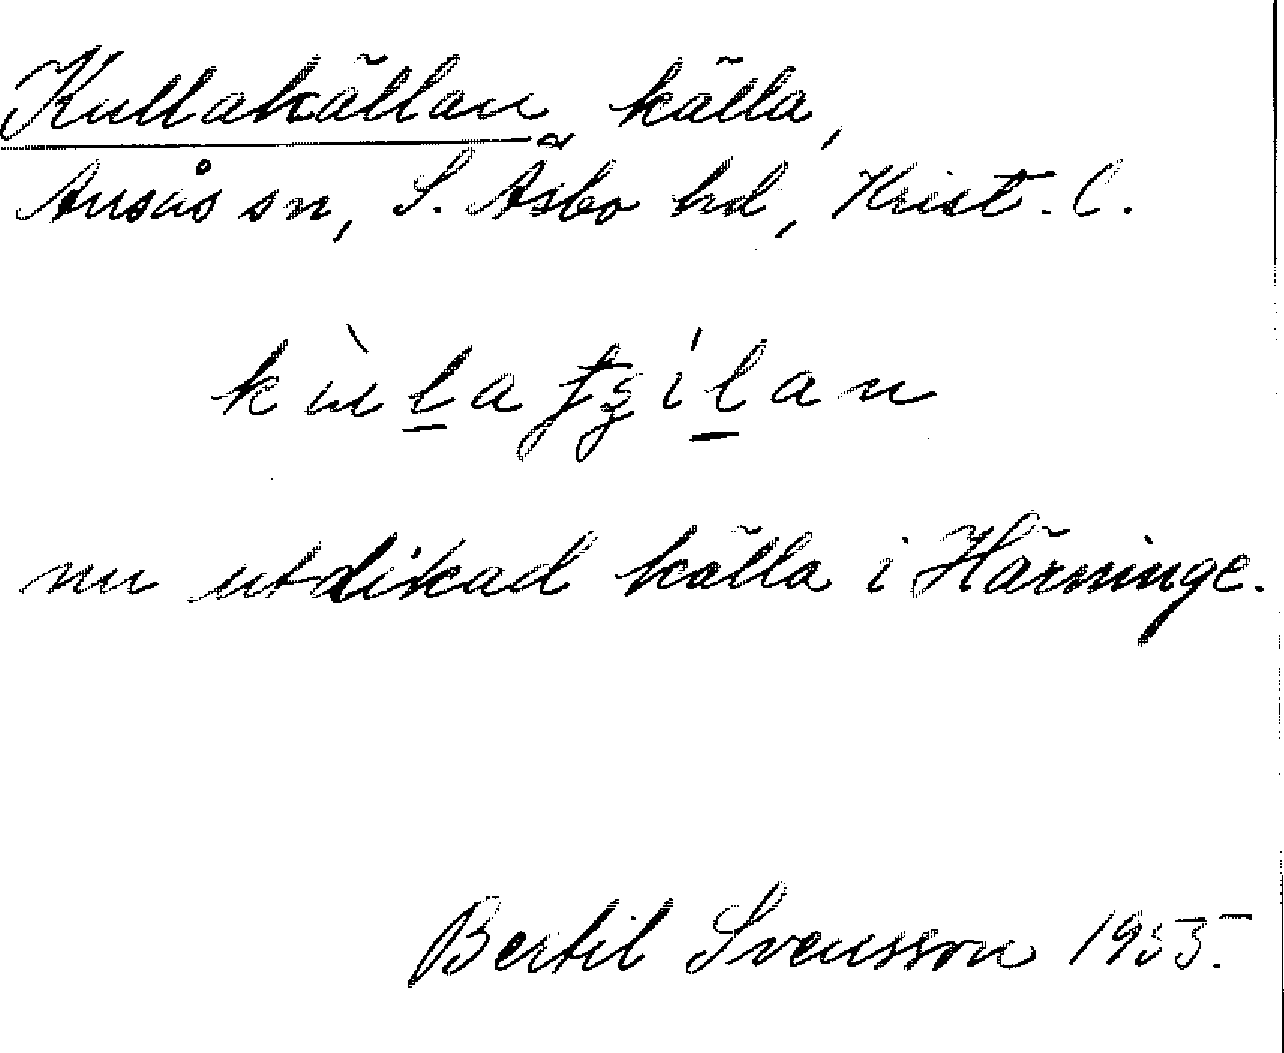 Kullakällan, källa,
Ausås sn, S. Åsbo hd, Krist. l.
nu utdikad källa i Härninge.
Bertil Svensson 1955.